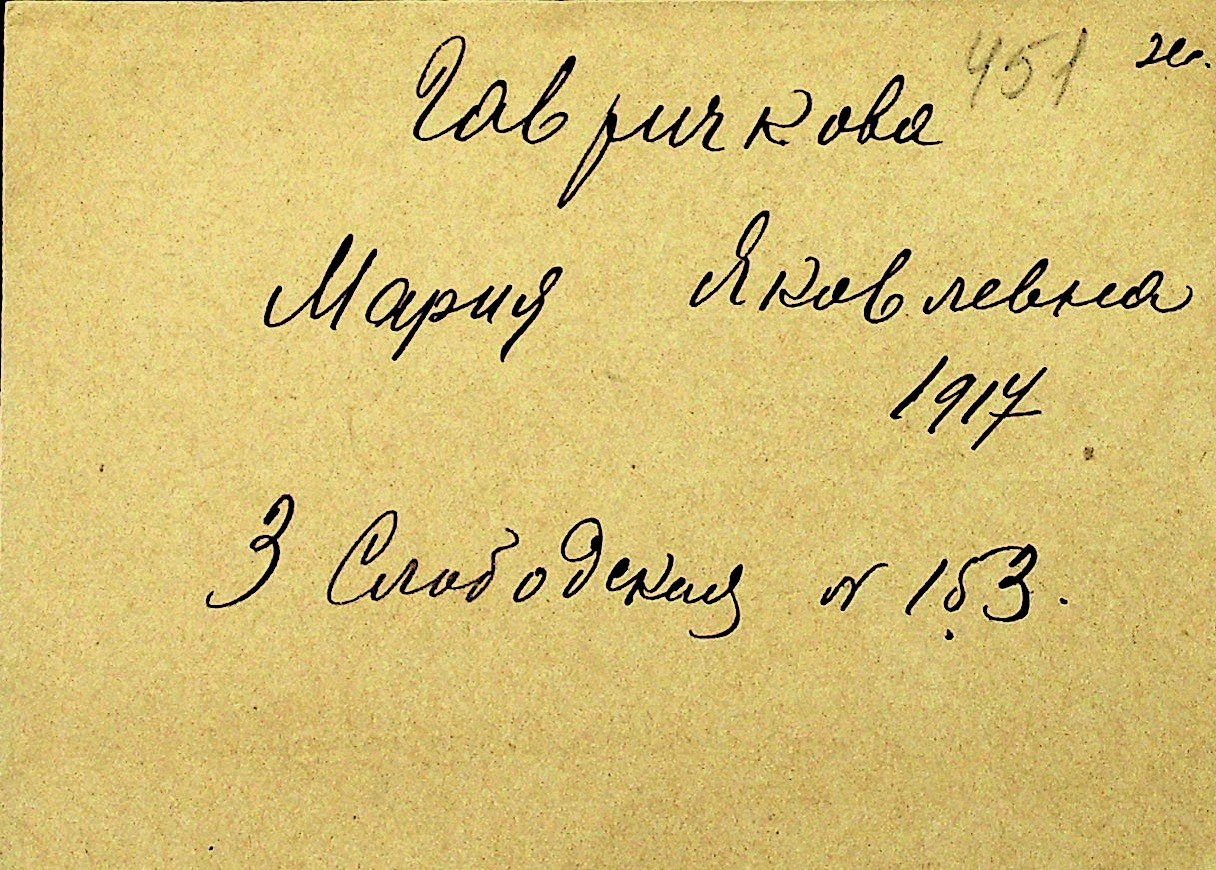 Гавричкова 451 ж.
Мария Яковлевна
1917
3 Слободская № 153.